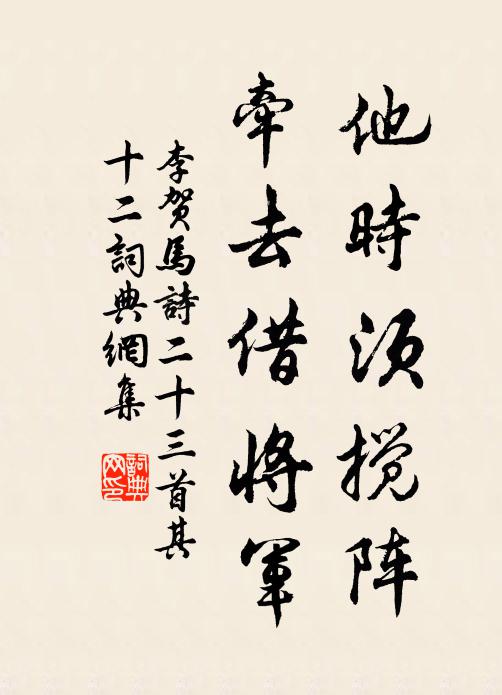 他時须搅阵
牽去借將軍
李贺馬詩二十三首其
十二詞典網集
詞典
网印